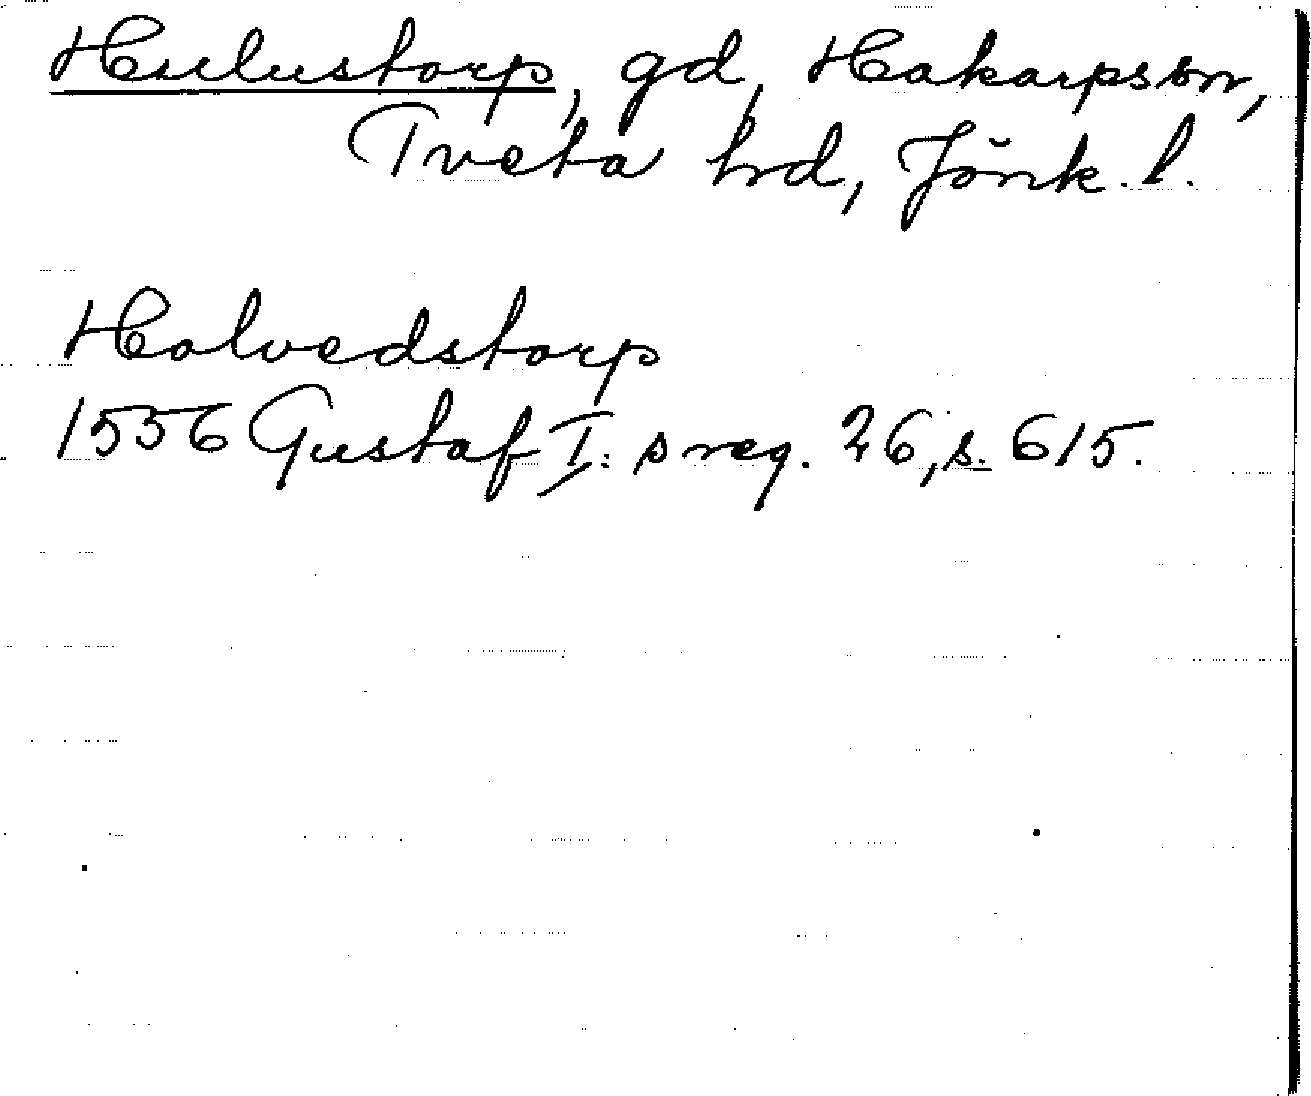 Hulustorp, gd, Hakarps sn,
Tveta hrd, Jönk. l.
Holvedstorp
1556 Gustaf I:s reg. 26, s. 615.